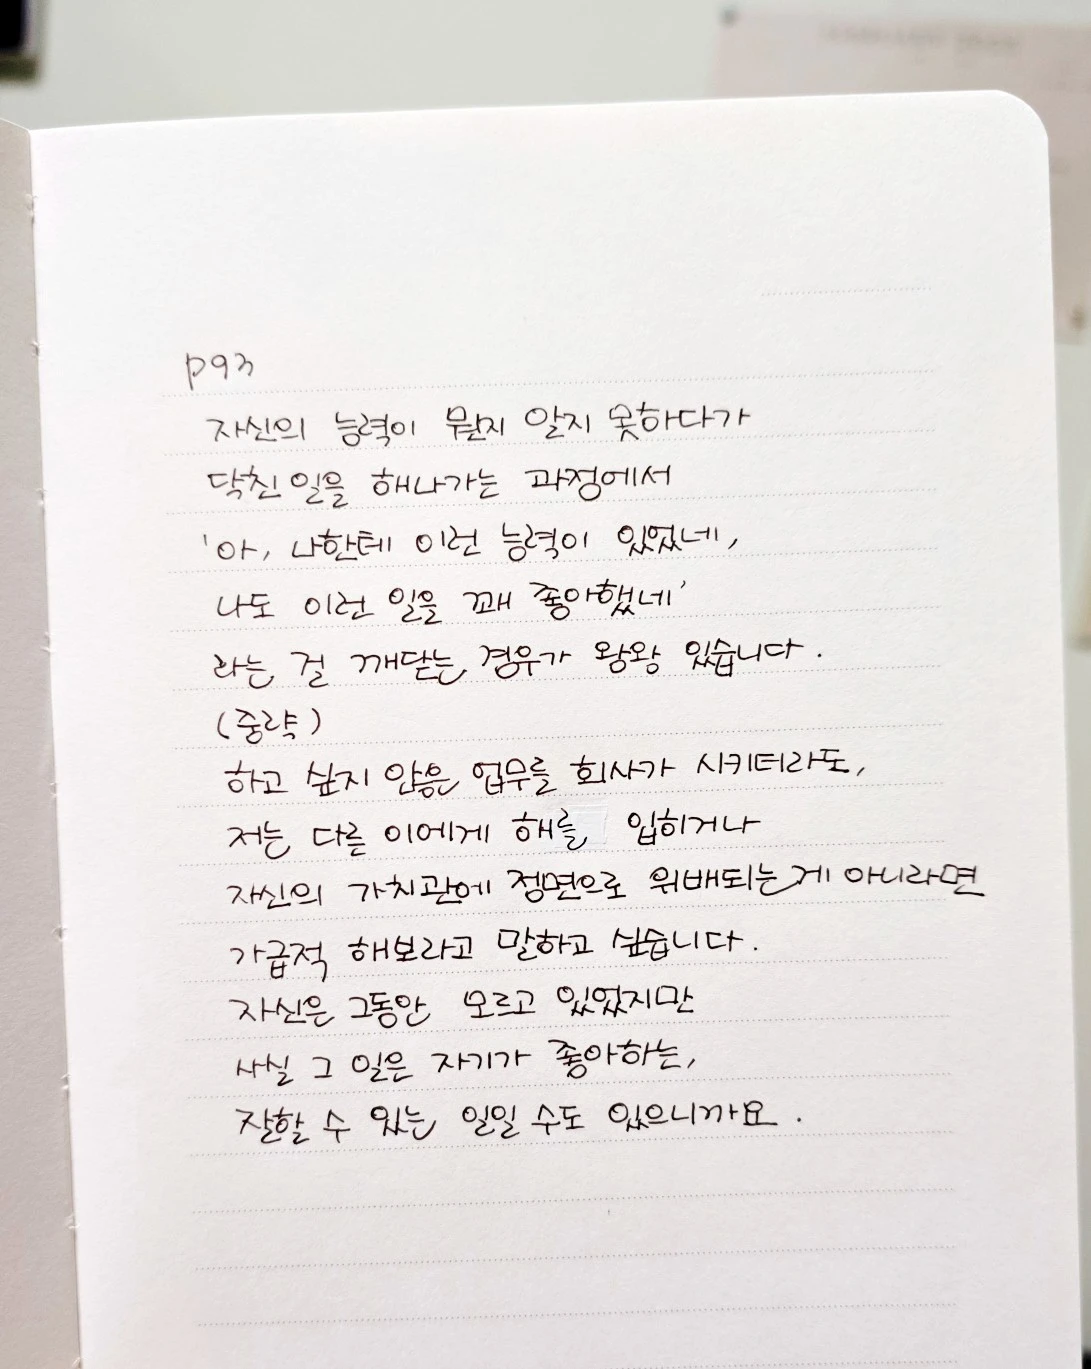 p93
자신의 능력이 뭔지 알지 못하다가
닥친 일을 해나가는 과정에서
'아, 나한테 이런 능력이 있었네,
나도 이런 일을 꽤 좋아했네'
라는 걸 깨닫는 경우가 왕왕 있습니다.
(중략)
하고 싶지 않은 업무를 회사가 시키더라도,
저는 다른 이에게 해를 입히거나
자신의 가치관에 정면으로 위배되는 게 아니라면
가급적 해보라고 말하고 싶습니다.
자신은 그동안 모르고 있었지만
사실 그 일은 자기가 좋아하는,
잘할 수 있는 일일 수도 있으니까요.